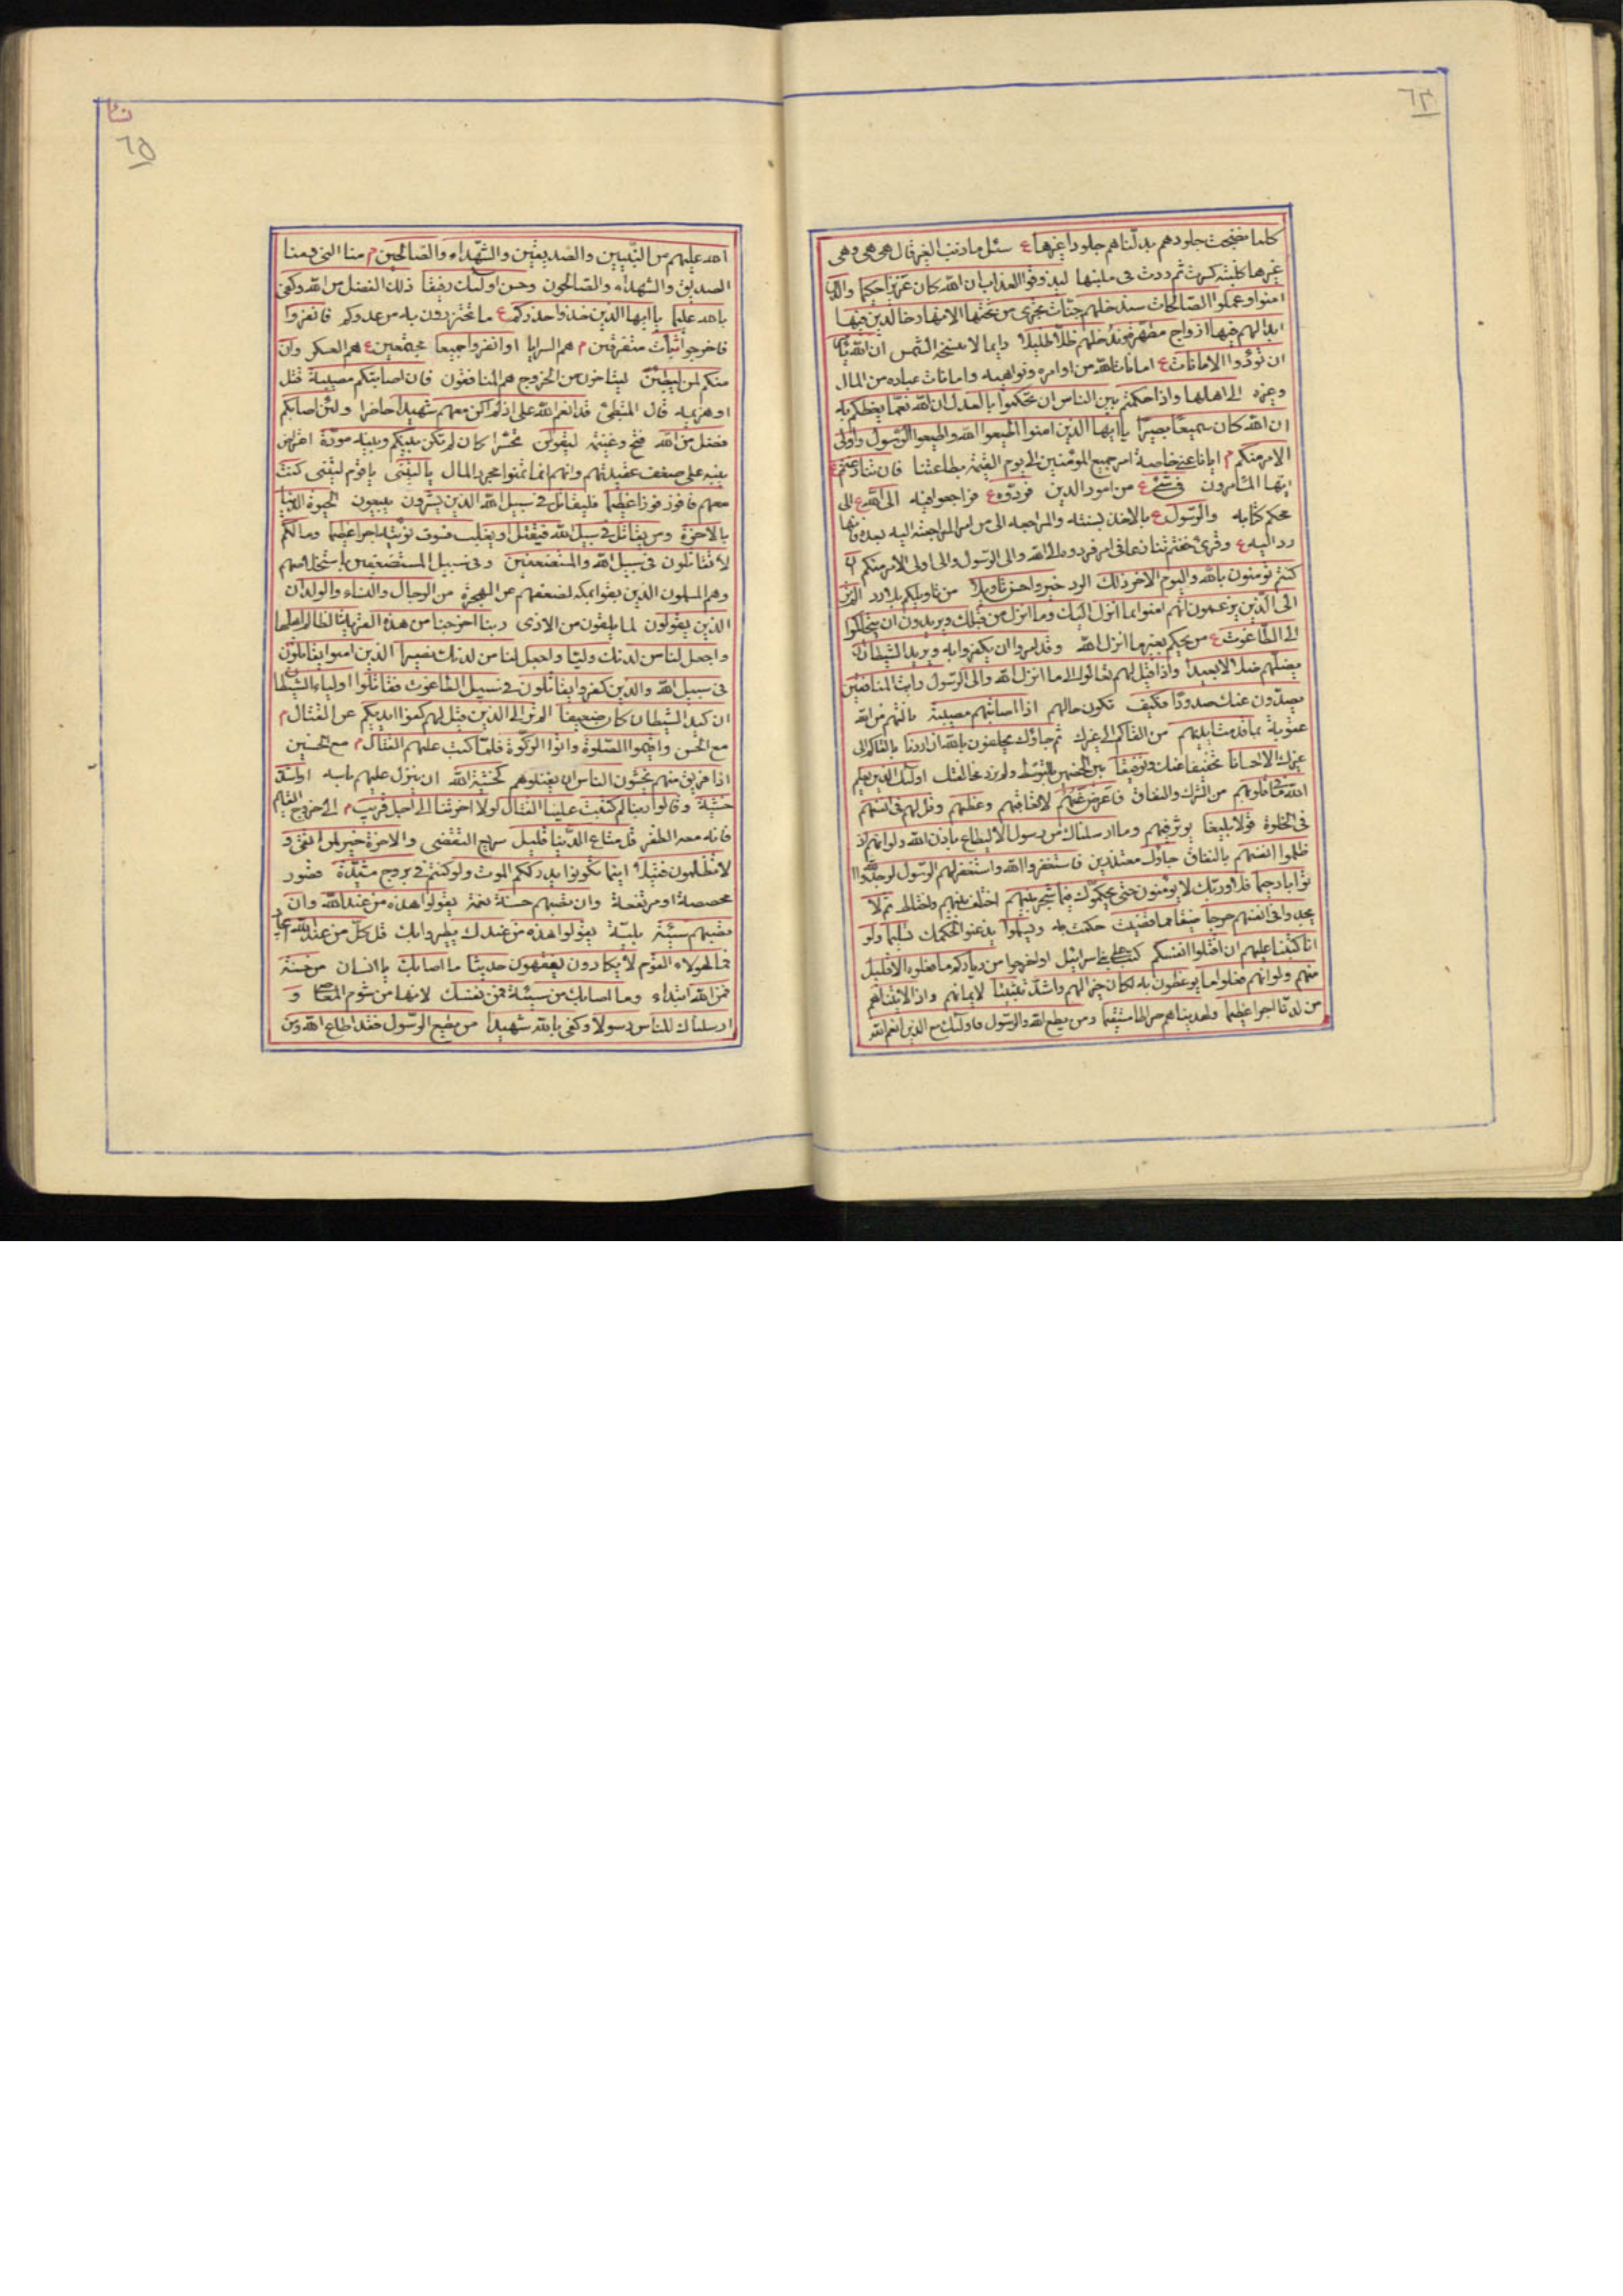 ٦٤
كلما نضجت جلودهم بدلناهم جلودا غيرها ع سئل ما ذنب الغير قال هى هى وهى
غيرها كلبنة كسرت ثم ردت فى ملبنها ليذوقوا العذاب ان الله كان عزيزا حكيما والذين
امنوا وعملوا الصالحات سندخلهم جنات تجرى من تحتها الانهار خالدين فيها
ابدا لهم فيها ازواج مطهرة وندخلهم ظلا ظليلا دايما لا تنسخه الشمس ان الله يأمركم
ان تؤدوا الامانات ع امانات الله من اوامره ونواهيه وامانات عباده من المال
وغيره الى اهلها واذا حكمتم بين الناس ان تحكموا بالعدل ان الله نعما يعظكم به
ان الله كان سميعا بصيرا يا ايها الذين امنوا اطيعوا الله واطيعوا الرسول واولى
الامر منكم م ايانا عنى خاصة امر جميع المؤمنين الى يوم القيمة بطاعتنا فان تنازعتم ع
ايها المأمرون فى شئ ع من امور الدين فردوه ع فراجعوا فيه الى الله ع الى
محكم كتابه والرسول ع بالاخذ بسنته والمراجعة الى من امر بالمراجعة اليه بعده فانها
رد اليه ع وقرئ خفتم تنازعا فى امر فردوه الى الله والى الرسول والى اولى الامر منكم ان
كنتم تؤمنون بالله واليوم الاخر ذلك الرد خير واحسن تاويلا من تاويلكم بلا رد الم تر
الى الذين يزعمون انهم امنوا بما انزل اليك وما انزل من قبلك ويريدون ان يتحاكموا
الى الطاغوت ع من يحكم بغير ما انزل الله وقد امروا ان يكفروا به ويريد الشيطان ان
يضلهم ضلالا بعيدا واذا قيل لهم تعالوا الى ما انزل الله والى الرسول رايت المنافقين
يصدون عنك صدودا فكيف تكون حالهم اذا اصابتهم مصيبة نالتهم من الله
عقوبة بما قدمت ايديهم من التحاكم الى غيرك ثم جاؤك يحلفون بالله ان اردنا بالتحاكم الى
غيرك الا احسانا تخفيفا عنك وتوفيقا بين الخصمين بالتوسط ولم نرد مخالفتك اولئك الذين يعلم
الله ما فى قلوبهم من الشرك والنفاق فاعرض عنهم لا تعاقبهم وعظهم وقل لهم فى انفسهم
فى الخلوة قولا بليغا يؤثر فيهم وما ارسلناك من رسول الا ليطاع باذن الله ولو انهم اذ
ظلموا انفسهم بالنفاق جاؤك معتذرين فاستغفروا الله واستغفر لهم الرسول لوجدوا الله
توابا رحيما فلا وربك لا يؤمنون حتى يحكموك فيما شجر بينهم اختلف بينهم واختلط ثم لا
يجدوا فى انفسهم حرجا ضيقا مما قضيت حكمت به ويسلموا يذعنوا لحكمك تسليما ولو
انا كتبنا عليهم ان اقتلوا انفسكم كتب على بنى اسرائيل او اخرجوا من دياركم ما فعلوه الا قليل
منهم ولو انهم فعلوا ما يوعظون به لكان خيرا لهم واشد تثبيتا لايمانهم واذا لاتيناهم
من لدنا اجرا عظيما ولهديناهم صراطا مستقيما ومن يطع الله والرسول فاولئك مع الذين انعم الله
٦٥
الله عليهم من النبيين والصديقين والشهداء والصالحين م منا النبى ومنا
الصديق والشهداء والصالحون وحسن اولئك رفيقا ذلك الفضل من الله وكفى
بالله عليما يا ايها الذين خذوا حذركم ع ما تحترزون به من عدوكم فانفروا
فاخرجوا ثبات متفرقين م هم السرايا او انفروا جميعا مجتمعين ع هم العسكر وان
منكم لمن ليبطئن ليتاخرن من الخروج هم المنافقون فان اصابتكم مصيبة قتل
او هزيمه قال المبطئ قد انعم الله على اذ لم اكن معهم شهيدا حاضرا ولئن اصابكم
فضل من الله فتح وغنيمه ليقولن تحسرا كان لم تكن بينكم وبينه مودة اعتراض
ينبه على ضعف عقيدتهم وانهم انما تمنوا مجرد المال يا ليتنى يا قوم ليتنى كنت
معهم فافوز فوزا عظيما فليقاتل فى سبيل الله الذين يشرون يبيعون الحيوة الدنيا
بالاخرة ومن يقاتل فى سبيل الله فيقتل او يغلب فسوف نؤتيه اجرا عظيما وما لكم
لا تقاتلون فى سبيل الله والمستضعفين وفى سبيل المستضعفين باستخلاصهم
وهم المسلمون الذين بقوا بمكه لضعفهم عن الهجرة من الرجال والنساء والولدان
الذين يقولون لما يلقون من الاذى ربنا اخرجنا من هذه القرية الظالم اهلها
واجعل لنا من لدنك وليا واجعل لنا من لدنك نصيرا الذين امنوا يقاتلون
فى سبيل الله والذين كفروا يقاتلون فى سبيل الطاغوت فقاتلوا اولياء الشيطان
ان كيد الشيطان كان ضعيفا الم تر الى الذين قيل لهم كفوا ايديكم عن القتال م
مع الحسن واقيموا الصلوة واتوا الزكوة فلما كتب عليهم القتال م مع الحسين
اذا فريق منهم يخشون الناس ان يقتلوهم كخشية الله ان ينزل عليهم باسه او اشد
خشية وقالوا ربنا لم كتبت علينا القتال لولا اخرتنا الى اجل قريب م الى خروج القائم
فانه معه الظفر قل متاع الدنيا قليل سريع التقضى والاخرة خير لمن اتقى و
لا تظلمون فتيلا اينما تكونوا يدرككم الموت ولو كنتم فى بروج مشيدة قصور
مجصصة او مرتفعة وان تصبهم حسنة نعمة يقولوا هذه من عند الله وان
تصبهم سيئة بلية يقولوا هذه من عندك يطيروا بك قل كل من عند الله
فما لهولاء القوم لا يكادون يفقهون حديثا ما اصابك يا انسان من حسنة
فمن الله ابتداء وما اصابك من سيئة فمن نفسك لانها من شوم المعاصى و
ارسلناك للناس رسولا وكفى بالله شهيدا من يطع الرسول فقد اطاع الله ومن